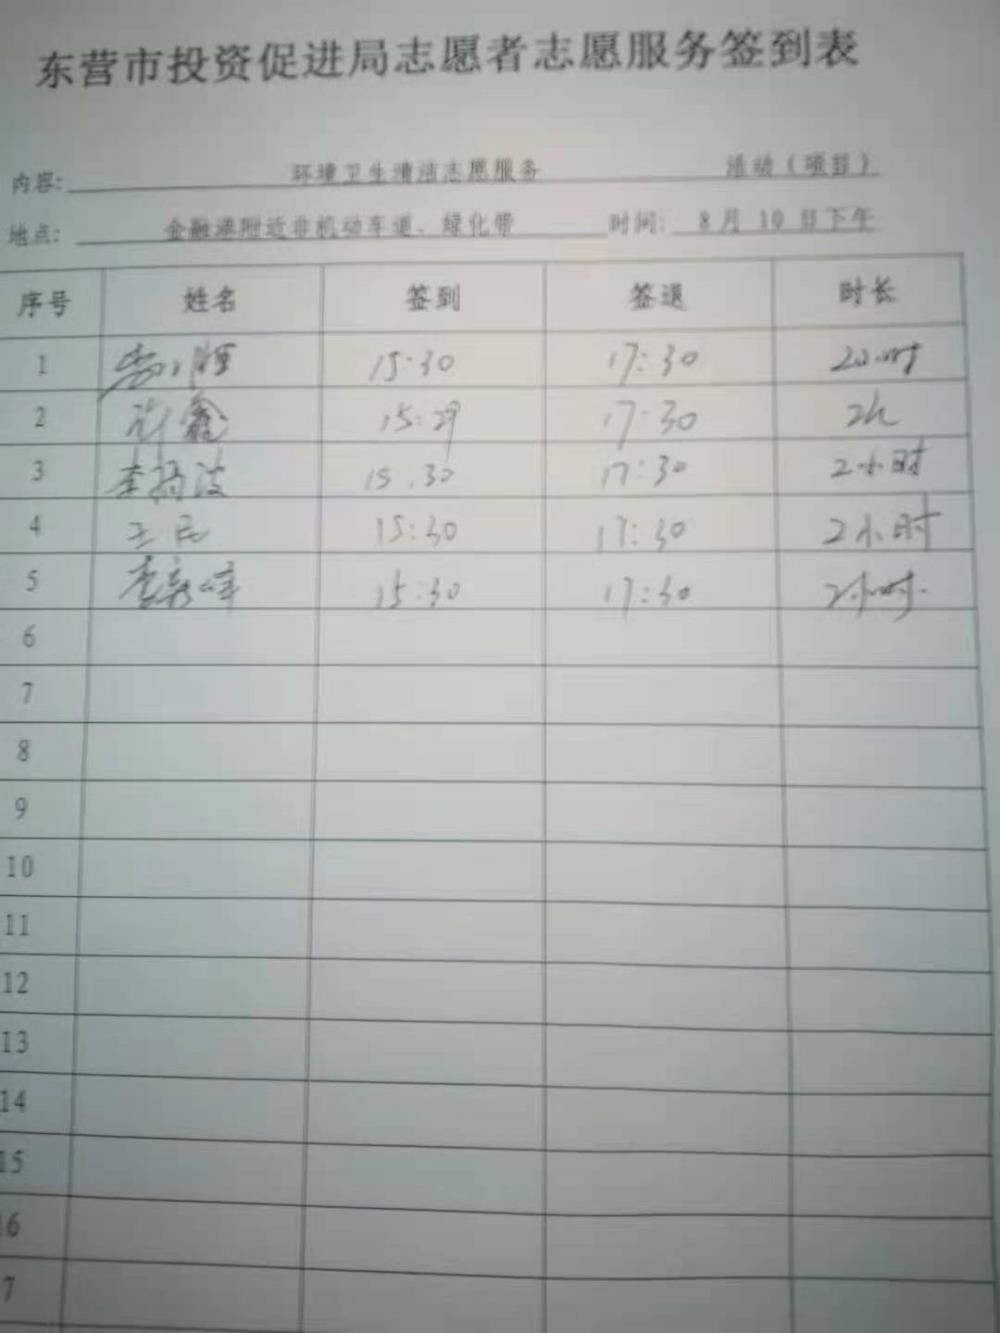 东营市投资促进局志愿者志愿服务签到表
内容: 环境卫生清洁志愿服务 活动（项目）
地点: 金融港附近非机动车道、绿化带 时间: 8月10日下午
序号 姓名 签到 签退 时长
1 15:30 17:30 2小时
2 许鑫 15:29 17:30 2h
3 李 波 15:30 17:30 2小时
4 王民 15:30 17:30 2小时
5 李 峰 15:30 17:30 2小时.
6
7
8
9
10
11
12
13
14
15
16
7